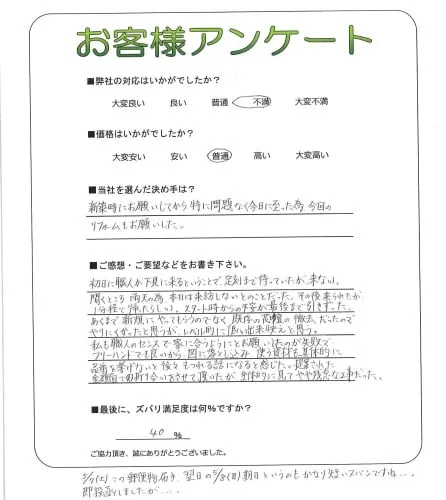 お客様アンケート
■弊社の対応はいかがでしたか?
大変良い 良い 普通 不満 大変不満
■価格はいかがでしたか?
大変安い 安い 普通 高い 大変高い
■当社を選んだ決め手は?
新築時にお願いしてから特に問題なく今日に至った為、今回の
リフォームもお願いした。
■ご感想・ご要望などをお書き下さい。
初日に職人が下見に来るということで、定刻まで待っていたが、来ない。
聞くところ、雨天の為、本日は来訪しないとのことだった。その後来られたが
スタート時からの不安が最後まで引きずった。
あくまで新規にやってもらうのでなく、既存の 撤去だったので
やりにくかったと思うが、レベル的に低い出来映えと思う。
私も職人のセンスで家に合うようにとお願いしたのが失敗で
フリーハンドでも良いから、図に落とし込み、使う資材も具体的に
品番を挙げないと後々もつれる話になると感じた。提案された
金額面で折り合いをさせて頂いたが、全体的に見てやや残念な工事だった。
■最後に、ズバリ満足度は何%ですか?
40 %
ご協力頂き、誠にありがとうございました。
5/7(土)この郵便物届き、翌日の5/8(日)期日というのもかなり短いスパンですね…。
即投函しましたが…。